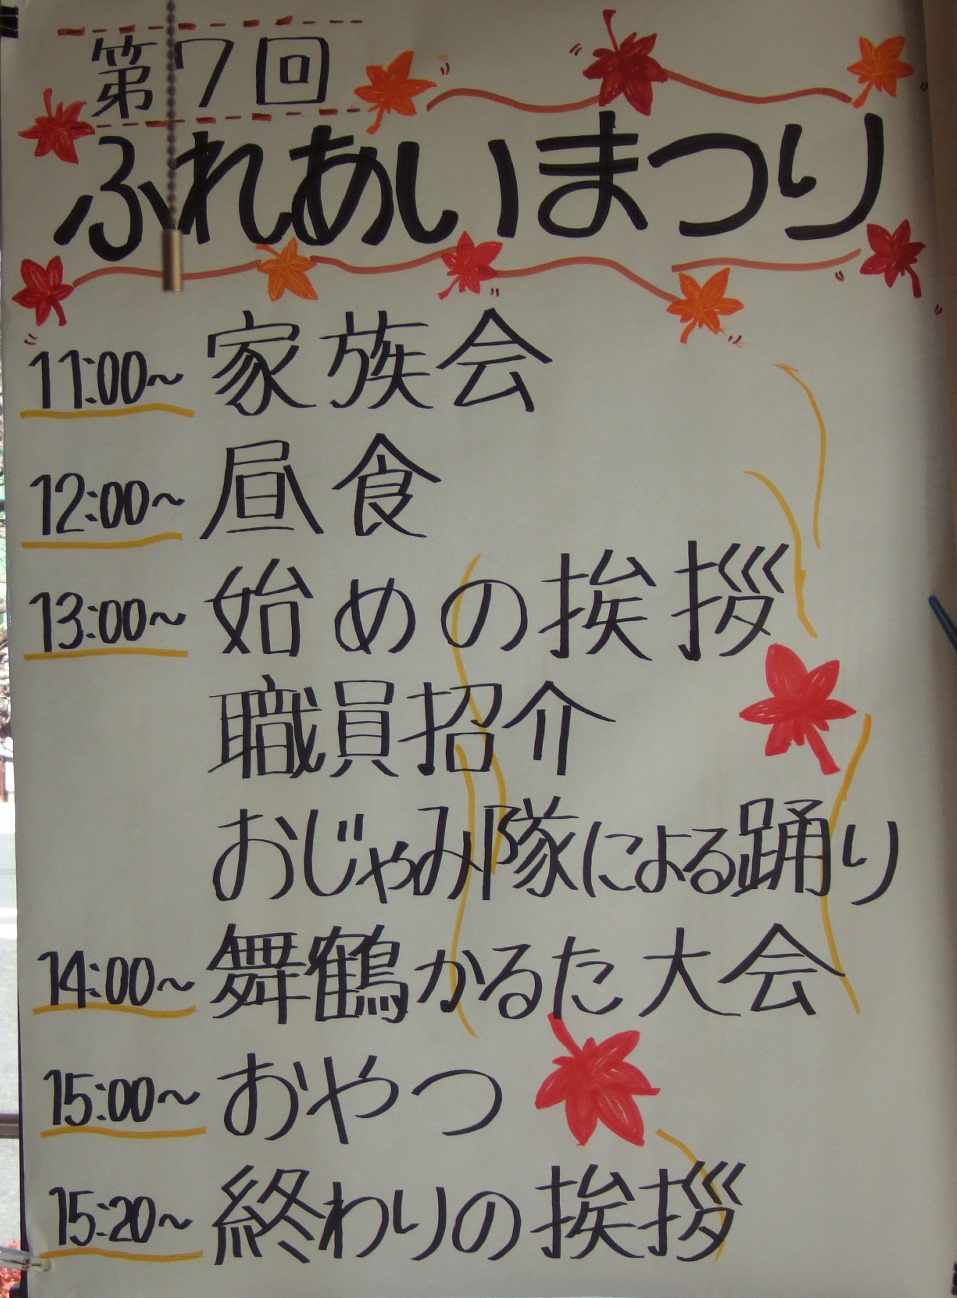 第7回
ふれあいまつり
11:00~ 家族会
12:00~ 昼食
13:00~ 始めの挨拶
職員招介
おじゃみ隊による踊り
14:00~ 舞鶴かるた大会
15:00~ おやつ
15:20~ 終わりの挨拶